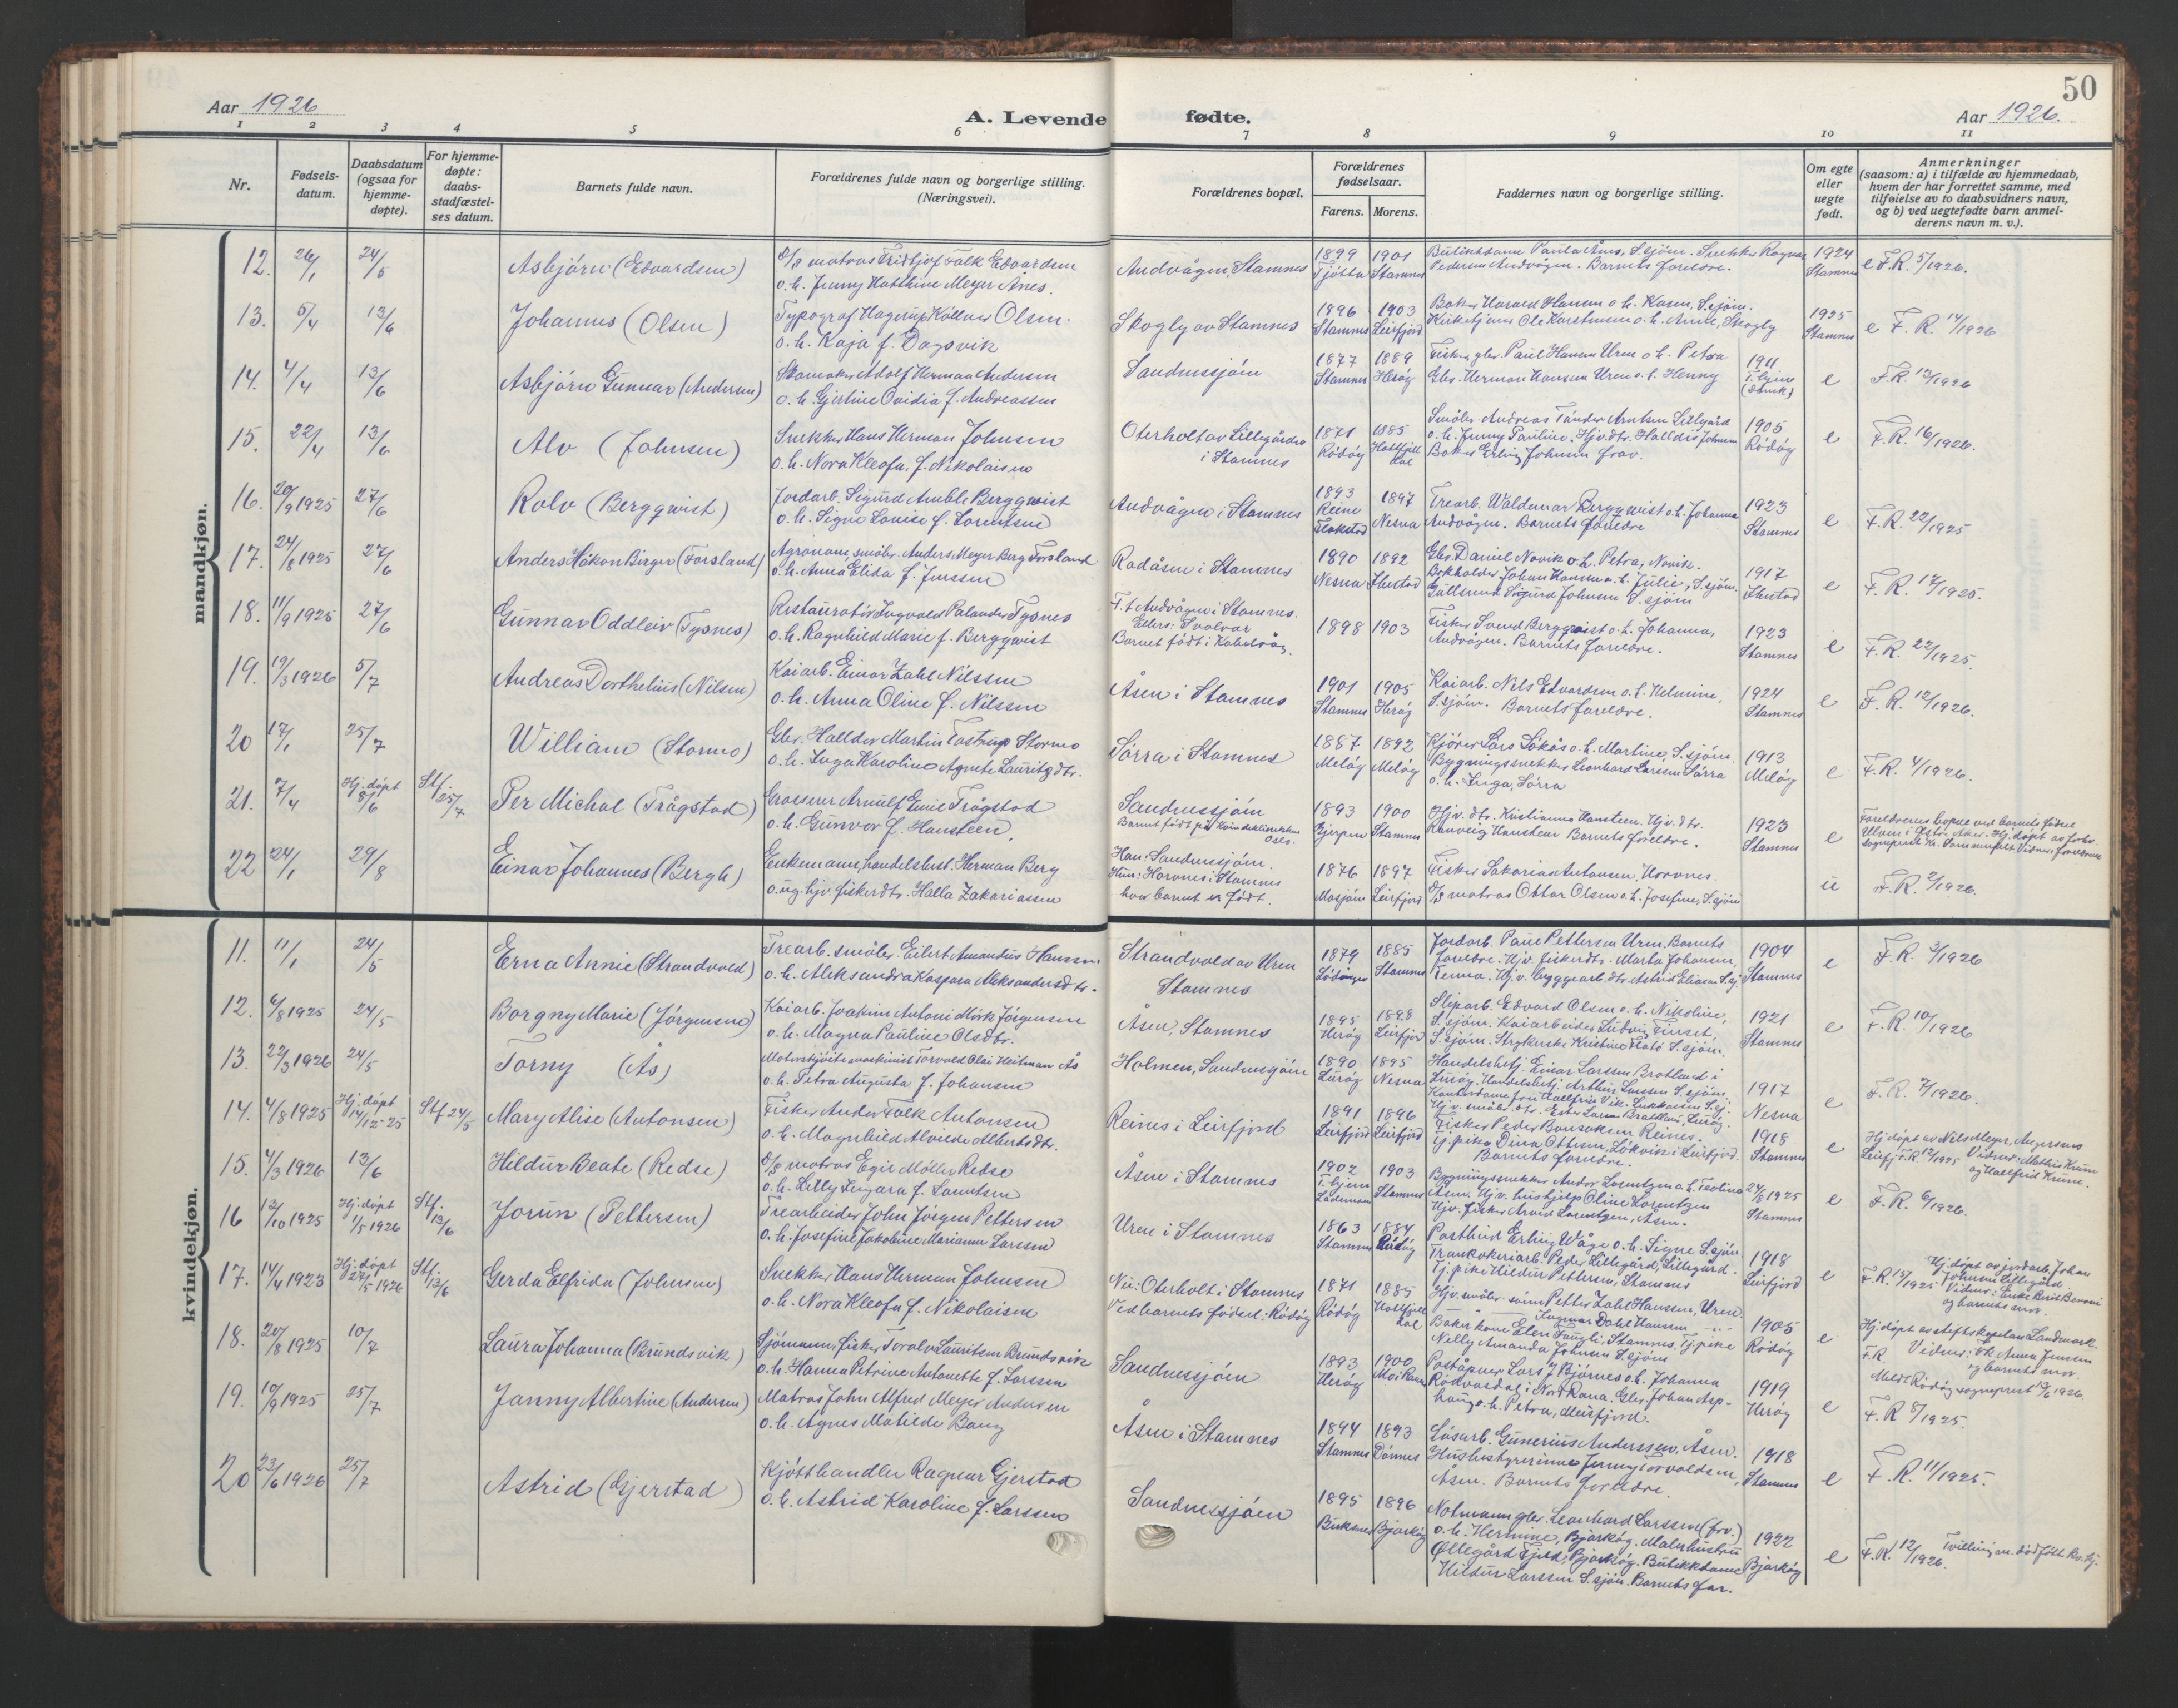 50
Aar 1926
A. Levende fødte.
Aar 1926.
1 2 3 4 5 6 7 8 9 10 11
Nr.
Fødsels-
datum.
Daabsdatum
(ogsaa for
hjemme-
døpte).
For hjemme-
døpte:
daabs-
stadfæstel-
ses datum.
Barnets fulde navn.
Forældrenes fulde navn og borgerlige stilling.
(Næringsvei).
Forældrenes bopæl.
Forældrenes
fødselsaar.
Farens. Morens.
Faddernes navn og borgerlige stilling.
Om egte
eller
uegte
født.
Anmerkninger
(saasom: a) i tilfælde av hjemmedaab,
hvem der har forrettet samme, med
tilføielse av to daabsvidners navn,
og b) ved uegtefødte barn anmel-
derens navn m. v.).
mandkjøn.
12. 26/1 24/5 Asbjörn (Edvardsen)
D/s matros Fridtjof Falk Edvardsen
o. h. Jenny Hatthine Meyer Anes.
Andvågen, Stamnes
1899 1901
Tjötta Stamnes
Butikkdame Paula Anes, S.sjöen. Snekker Ragnar
Pedersen Andvågen. Barnets foreldre.
1924
Stamnes
e F.R. 5/1926.
13. 5/4 13/6 Johannes (Olsen)
Typograf Hagerup Köllner Olsen
o. h. Kaja f. Dagsvik
Skogly av Stamnes
1896 1903
Stamnes Leirfjord
Baker Harald Hansen o. h. Karen, S.sjöen.
Kirketjener Ole Karstensen o. h. Anne, Skogly
1925
Stamnes
e F. R. 14/1926
14. 4/4 13/6 Asbjörn Gunnar (Andersen)
Skomaker Adolf Herman Andersen
o. h. Gjertine Ovidia f. Andreassen
Sandnessjöen
1877 1889
Stamnes Heröy
Fisker, gbr. Paul Hansen Uren o. h. Petra
Gbr. Herman Hansen Uren o. h. Henny
1911
T. hjem
e F.R. 13/1926
15. 22/4 13/6 Alv (Johnsen)
Snekker Hans Herman Johnsen
o. h. Nora Kleofa f. Nikolaisen
Oterholt av Lillegården
i Stamnes
1871 1885
Rödöy Hattfjell
dal
Småbr. Andreas Tander Arntsen Lillegård
o. h. Jenny Pauline, Hjv. dtr. Halldis Johnsen
Baker Erling Johnsen frav.
1905
Rödöy
e F.R. 16/1926.
16. 20/9 1925 27/6 Rolv (Bergqvist)
Jordarb. Sigurd Amble Bergqvist
o. h. Signe Louise f. Lorentsen
Andvågen i Stamnes
1893 1897
Reine Nesna
Flakstad
Trearb. Waldemar Bergqvist o. h. Johanna
Andvågen. Barnets foreldre
1923
Stamnes
e F.R. 22/1925
17. 24/8 1925 27/6 Anders Håkon Birger (Forsland)
Agronom, småbr. Anders Meyer Berg Forsland
o. h. Anna Elida f. Jenssen
Radåsen i Stamnes
1890 1892
Nesna Ibestad
Gbr. Daniel Novik o. h. Petra, Novik.
Bokholder Johan Hansen o. h. Julie, S.sjöen.
Gullsmed Sigurd Johnsen S.sjöen
1917
Ibestad
e F.R. 17/1925.
18. 11/9 1925 27/6 Gunnar Oddleiv (Tysnes)
Restauratör Ingvald Palander Tysnes
o. h. Ragnhild Marie f. Bergqvist
F. t. Andvågen i Stamnes.
Ellers: Svolvær
Barnet födt i Kabelvåg.
1898 1903
Fisker Svend Bergqvist o. h. Johanna,
Andvågen. Barnets foreldre.
1923
Stamnes
e F.R. 22/1925.
19. 19/3 1926 5/7 Andreas Dorthelius (Nilsen)
Kaiarb. Einar Zahl Nilssen
o. h. Anna Oline f. Nilssen
Åsen i Stamnes
1901 1905
Stamnes Heröy
Kaiarb. Nils Edvardsen o. h. Helmine,
S.sjöen. Barnets foreldre.
1924
Stamnes
e F.R. 12/1926.
20 17/1 25/7 William (Stormo)
Gbr. Halldor Martin Tostrup Stormo
o. h. Inga Karoline Agnete Lauritzdtr.
Sörra i Stamnes
1887 1892
Melöy Melöy
Kjörer Lars Lökås o. h. Martine, S.sjöen.
Bygningssnekker Leonhard Larssen Sörra
o. h. Inga, Sörra
1913
Melöy
e F.R. 4/1926.
21. 7/4 Hj.döpt 8/6 Stf. 25/7 Per Michal (Trågstad)
Grosserer Arnulf Emil Trågstad
o. h. Gunvor f. Hansteen
Sandnessjöen
Barnet födt på Kvindeklinikken
Oslo.
1893 1900
Gjerpen Stamnes
Hjv. dtr. Kristianna Hansteen. Hjv. dtr.
Ranveig Hansteen Barnets foreldre.
1923
Stamnes
e Foreldrenes bopæl ved barnets födsel
Ullern i Östre Aker. Hj.döpt av forhv.
sogneprest Kr. Sommerfelt. Vidner: foreldrene
22 24/1 29/8 Einar Johannes (Bergh)
Enkemann, handelsbest. Herman Berg
o. ug. hjv. fiskerdtr. Halla Zakariassen
Han: Sandnessjöen.
Hun: Horvnes i Stamnes
hvor barnet er födt.
1876 1897
Mosjöen Leirfjord
Fisker Sakarias Antonsen, Horvnes.
D/s matros Ottar Olsen o. h. Josefine, S.sjöen
u F.R. 2/1926.
kvindekjøn.
11. 11/1 24/5 Erna Annie (Strandvold)
Trearb. småbr. Eilert Amandus Hansen
o. h. Aleksandra Kaspara Aleksandersdtr.
Strandvold av Uren
Stamnes
1879 1885
Lödingen Stamnes
Jordarb. Paul Pettersen Uren. Barnets
foreldre. Hjv. fiskerdtr. Marta Johansen,
Tenna. Hjv. byggearb.dtr. Astrid Eliasen S.sj.
1904
Stamnes
e F.R. 3/1926
12. 6/8 1925 24/5 Borgny Marie (Jörgensen)
Kaiarb. Joakim Antoni Mörk Jörgensen
o. h. Magna Pauline Olsdtr.
Åsen, Stamnes
1895 1898
Heröy Leirfjord
Sliparb. Edvard Olsen o. h. Nikoline,
S.sjöen. Kaiarbeider Ludvig Finset,
S.sjöen. Strykerske Kristine Flatö S.sjöen.
1921
Stamnes
e F.R. 10/1926
13. 22/3 1926 24/5 Torny (Ås)
Motorskjöitemaskinist Torvald Olai Heitman Ås
o. h. Petra Augusta f. Johansen
Holmen, Sandnessjöen
1890 1895
Luröy Nesna
Handelsbetj. Einar Larssen Bratland i
Luröy. Handelsbetj. Arthur Larssen S.sjöen.
1917
Nesna
e F.R. 7/1926.
14. 4/8 1925 Hj.döpt 14/12-25 Stf. 24/5 Mary Alise (Antonsen)
Fisker Ander Falk Antonsen
o. h. Magnhild Alvilde Albertsdtr.
Reines i Leirfjord
1891 1896
Leirfjord Leirfjord
Fisker Peder Bardsokern Reines.
Tj.pike Dina Ottesen, Lökvik i Leirfjord.
Barnets foreldre.
1918
Stamnes
e Hj.döpt av Nils Meyer, Angersnes
Leirfj. F.R. 12/1925 Vidner: Mathis Krune
og Hallfrid Krune.
15. 4/3 1926 13/6 Hildur Beate (Redse)
D/s matros Egil Möller Redse
o. h. Lilly Ingara f. Lorentsen
Åsen i Stamnes
1902 1903
T. hjem Stamnes
Lademoen
Bygningssnekker Andor Lorentzen o. h. Teoline
Åsen. Hjv. hushjelp Oline Lorentzen
Hjv. fisker Arvid Lorentzen, Åsen.
24/8 1925
Stamnes
e F.R. 6/1926.
16 13/10 1925 Hj.döpt 1/5 1926 Stf. 13/6 Jorun (Pettersen)
Trearbeider John Jörgen Pettersen
o. h. Josefine Jakobine Marianne Larssen
Uren i Stamnes
1863 1884
Stamnes Rödöy
Postbud Erling Wåge o. h. Signe S.sjöen.
Trankokeriarb. Peder Lillegård, Lillegård.
Tj.pike Hildur Pettersen, Stamnes
1918
Leirfjord
e F.R. 15/1925 Hj.döpt av jordarb. Johan
Johnsen Lillegård
Vidner: Enke Berit Benoni
og barnets mor.
17. 14/4 1923 Hj.döpt 27/5 1926 Stf. 13/6 Gerda Elfrida (Johnsen)
Snekker Hans Herman Johnsen
o. h. Nora Kleofa f. Nikolaisen
Nu: Oterholt i Stamnes
Ved barnets födsel: Rödöy
1871 1885
Rödöy Hattfjell
dal
Hjv. småbr. sönn Petter Zahl Hansen, Uren.
Ingmar Dahl Hansen
Baker kone Elen Fuugli, Stamnes. Tj.pike
Nelly Amanda Johnsen S.sjöen
1905
Rödöy
e Hj.döpt av stiftskapellan Landmark.
F.R. Vidner: Frk. Anna Jensen
og barnets mor.
Meldt Rödöy sogneprest 1926
18. 20/8 1925 10/7 Laura Johanna (Brundsvik)
Sjömann, fisker Torolv Lauritsen Brundsvik
o. h. Hanna Petrine Antonette f. Larssen
Sandnessjöen
1893 1900
Heröy Mo i Rana
Poståpner Lars J. Björnes o. h. Johanna
Rödvasdal i Nord Rana. Gbr. Johan Asp-
haug o. h. Petra, Meisfjord.
1919
Heröy
e F.R 8/1925.
19. 19/9 1925 25/7 Janny Albertine (Andersen)
Matros John Alfred Meyer Andersen
o. h. Agnes Matilde Bang
Åsen i Stamnes
1894 1893
Stamnes Dönnes
Lösarb. Gunerius Anderssen, Åsen.
Husbestyrerinne Jenny Torvaldsen,
Åsen. Barnets foreldre.
1918
Stamnes
e F.R. 11/1925.
20 23/6 1926 25/7 Astrid (Gjerstad)
Kjötthandler Ragnar Gjerstad
o. h. Astrid Karoline f. Larssen
Sandnessjöen
1895 1896
Buksnes Bjarköy
Notmann gbr. Leonhard Larssen (frv.)
o. h. Hermine, Bjarköy. Malerhustru
Øllegård Fjeld, Bjarköy. Butikkdame
Hildur Larssen S.sjöen. Barnets far.
1922
Bjarköy
e F.R. 12/1926. Tvilling m. dödfött kv.kj.